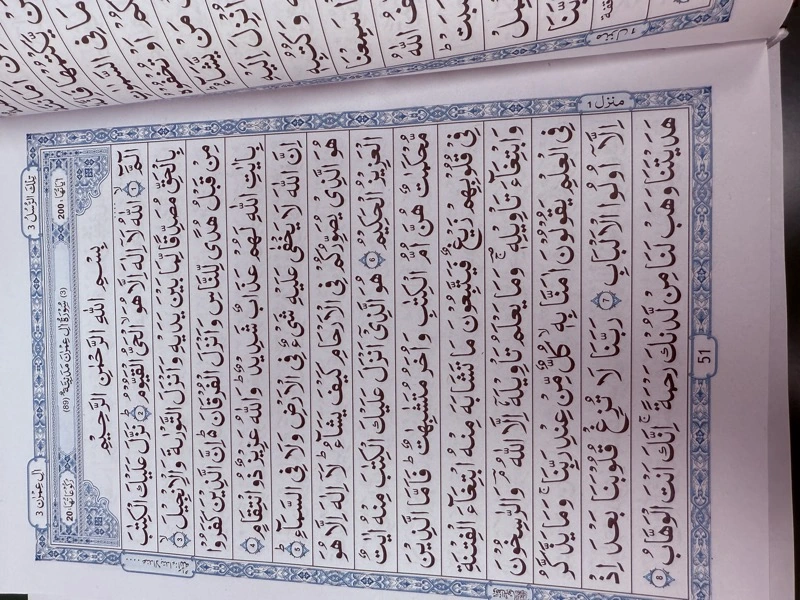 تِلْكَ الرُّسُلُ 3
اٰلِ عِمْرٰن 3
اٰیَاتُهَا 200
(3) سُوْرَةُ اٰلِ عِمْرٰنَ مَدَنِیَّةٌ (89)
رُكُوْعَاتُهَا 20
بِسْمِ اللّٰهِ الرَّحْمٰنِ الرَّحِیْمِ
الٓمَّٓ ۙ﴿1﴾ اللّٰهُ لَاۤ اِلٰهَ اِلَّا هُوَ ۙ الْحَیُّ الْقَیُّوْمُ ؕ﴿2﴾ نَزَّلَ عَلَیْكَ الْكِتٰبَ
بِالْحَقِّ مُصَدِّقًا لِّمَا بَیْنَ یَدَیْهِ وَ اَنْزَلَ التَّوْرٰىةَ وَ الْاِنْجِیْلَ ۙ﴿3﴾
مِنْ قَبْلُ هُدًی لِّلنَّاسِ وَ اَنْزَلَ الْفُرْقَانَ ؕ۬ اِنَّ الَّذِیْنَ كَفَرُوْا
بِاٰیٰتِ اللّٰهِ لَهُمْ عَذَابٌ شَدِیْدٌ ؕ وَ اللّٰهُ عَزِیْزٌ ذُو انْتِقَامٍ ﴿4﴾
اِنَّ اللّٰهَ لَا یَخْفٰی عَلَیْهِ شَیْءٌ فِی الْاَرْضِ وَ لَا فِی السَّمَآءِ ؕ﴿5﴾
هُوَ الَّذِیْ یُصَوِّرُكُمْ فِی الْاَرْحَامِ كَیْفَ یَشَآءُ ؕ لَاۤ اِلٰهَ اِلَّا هُوَ
الْعَزِیْزُ الْحَكِیْمُ ﴿6﴾ هُوَ الَّذِیْۤ اَنْزَلَ عَلَیْكَ الْكِتٰبَ مِنْهُ اٰیٰتٌ
مُّحْكَمٰتٌ هُنَّ اُمُّ الْكِتٰبِ وَ اُخَرُ مُتَشٰبِهٰتٌ ؕ فَاَمَّا الَّذِیْنَ
فِیْ قُلُوْبِهِمْ زَیْغٌ فَیَتَّبِعُوْنَ مَا تَشَابَهَ مِنْهُ ابْتِغَآءَ الْفِتْنَةِ
وَ ابْتِغَآءَ تَاْوِیْلِهٖ ۚ وَ مَا یَعْلَمُ تَاْوِیْلَهٗۤ اِلَّا اللّٰهُ ۘ وَ الرّٰسِخُوْنَ
فِی الْعِلْمِ یَقُوْلُوْنَ اٰمَنَّا بِهٖ ۙ كُلٌّ مِّنْ عِنْدِ رَبِّنَا ۚ وَ مَا یَذَّكَّرُ
اِلَّاۤ اُولُوا الْاَلْبَابِ ﴿7﴾ رَبَّنَا لَا تُزِغْ قُلُوْبَنَا بَعْدَ اِذْ
هَدَیْتَنَا وَهَبْ لَنَا مِنْ لَّدُنْكَ رَحْمَةً ۚ اِنَّكَ اَنْتَ الْوَهَّابُ ﴿8﴾
منزل 1
51